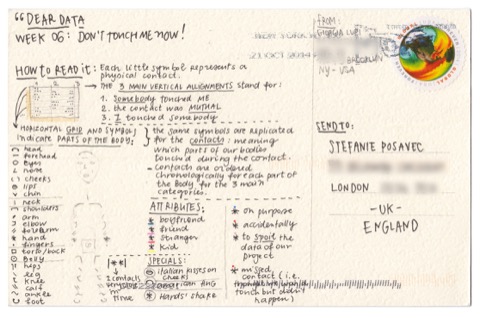 "DEAR DATA
WEEK 06: DON'T TOUCH ME NOW!
HOW TO READ IT: Each little symbol represents a
physical contact.
→ THE 3 MAIN VERTICAL ALIGNMENTS stand for:
1. Somebody touched ME
2. the contact was MUTUAL
3. I touched somebody
HORIZONTAL GRID AND SYMBOLS
indicate PARTS OF THE BODY:
head
forehead
eyes
nose
cheeks
lips
chin
neck
shoulders
arm
elbow
forearm
hand
fingers
torso/back
belly
hips
leg
knee
calf
ankle
foot
the same symbols are replicated
for the contacts: meaning
which parts of our bodies
touched during the contact.
- contacts are ordered
chronologically for each part
of the body for the 3 main
categories.
ATTRIBUTES:
* boyfriend
* friend
* stranger
* kid
* on purpose
* accidentally
* to spoil the
data of our
project
* missed
contact (i.e.
touch but didn't
happen)
SPECIALS:
|**|
contacts
time
italian kisses on
cheeks
hug
* Hands' shake
FROM:
GIORGIA LUPI
BROOKLYN
NY - USA
21 OCT 2014
SEND TO:
STEFANIE POSAVEC
LONDON
- UK -
ENGLAND